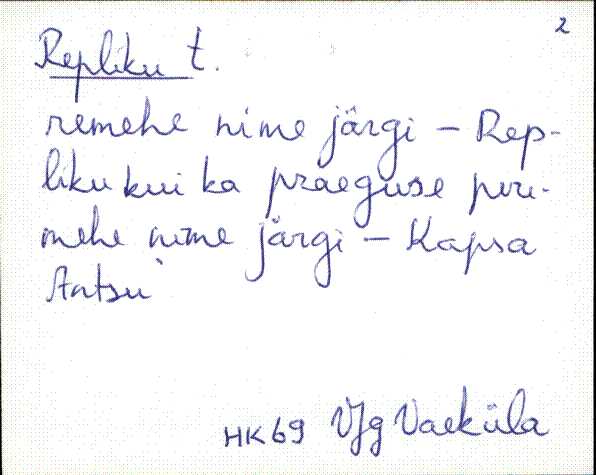 2
Repliku t.
remehe nime järgi – Rep-
liku kui ka praeguse pere-
mehe nime järgi – Kapsa
Antsu
HK 69 VJg Vaeküla